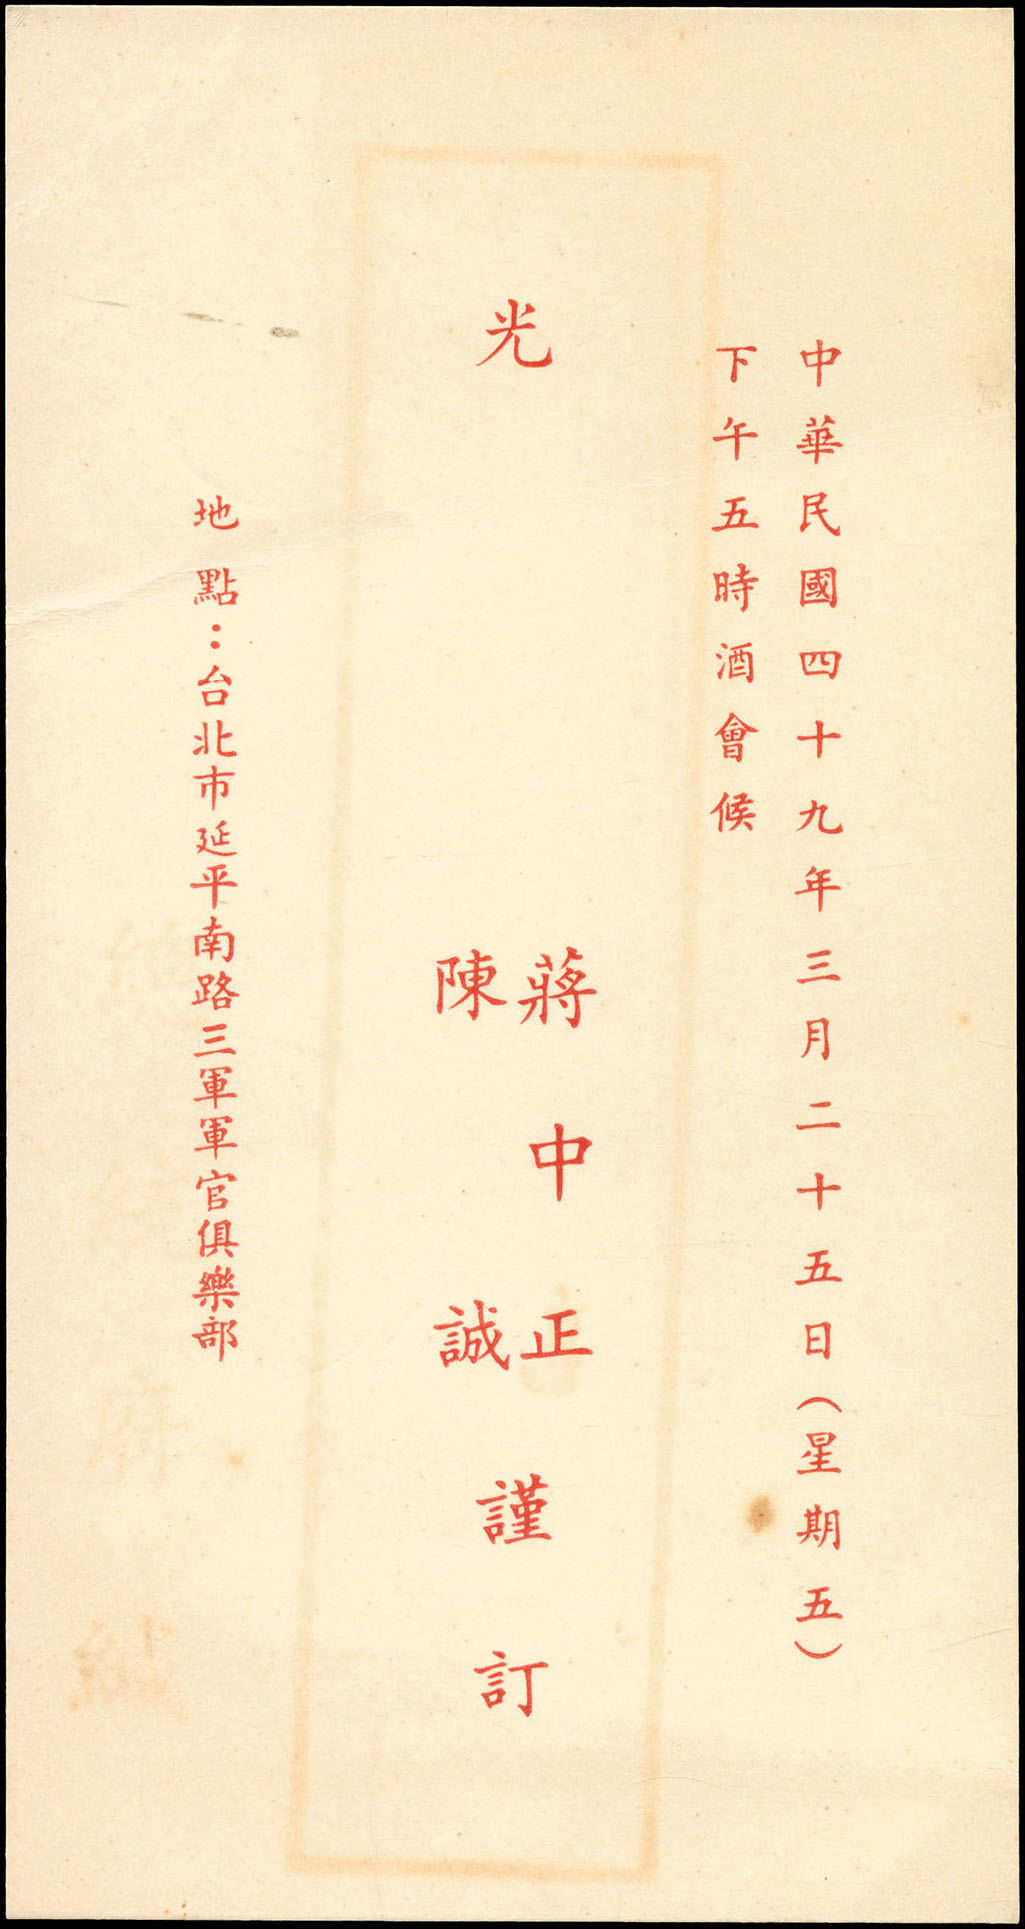 中華民國四十九年三月二十五日（星期五）
下午五時酒會候
光
蔣中正
陳誠
謹訂
地點：台北市延平南路三軍軍官俱樂部